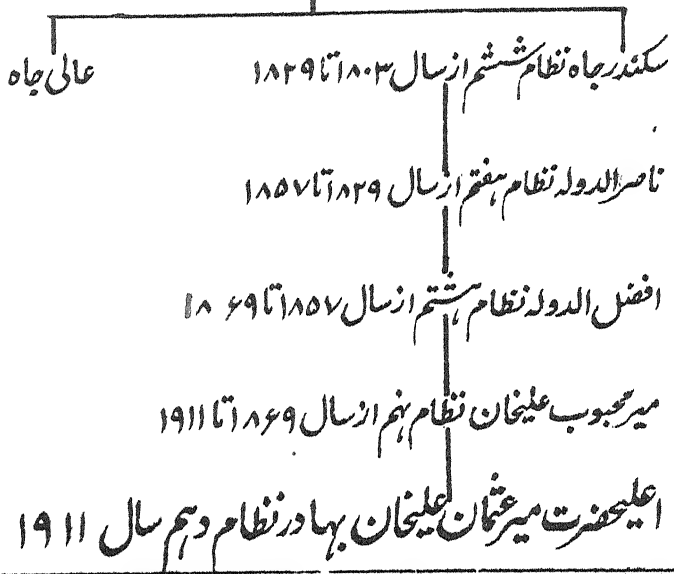 سکندر جاہ نظام ششم از سال ۱۸۰۳ تا ۱۸۲۹
عالی جاہ
ناصر الدولہ نظام ہفتم از سال ۱۸۲۹ تا ۱۸۵۷
افضل الدولہ نظام ہشتم از سال ۱۸۵۷ تا ۱۸۶۹
میر محبوب علیخان نظام نہم از سال ۱۸۶۹ تا ۱۹۱۱
اعلیحضرت میر عثمان علیخان بہادر نظام دہم سال ۱۹۱۱